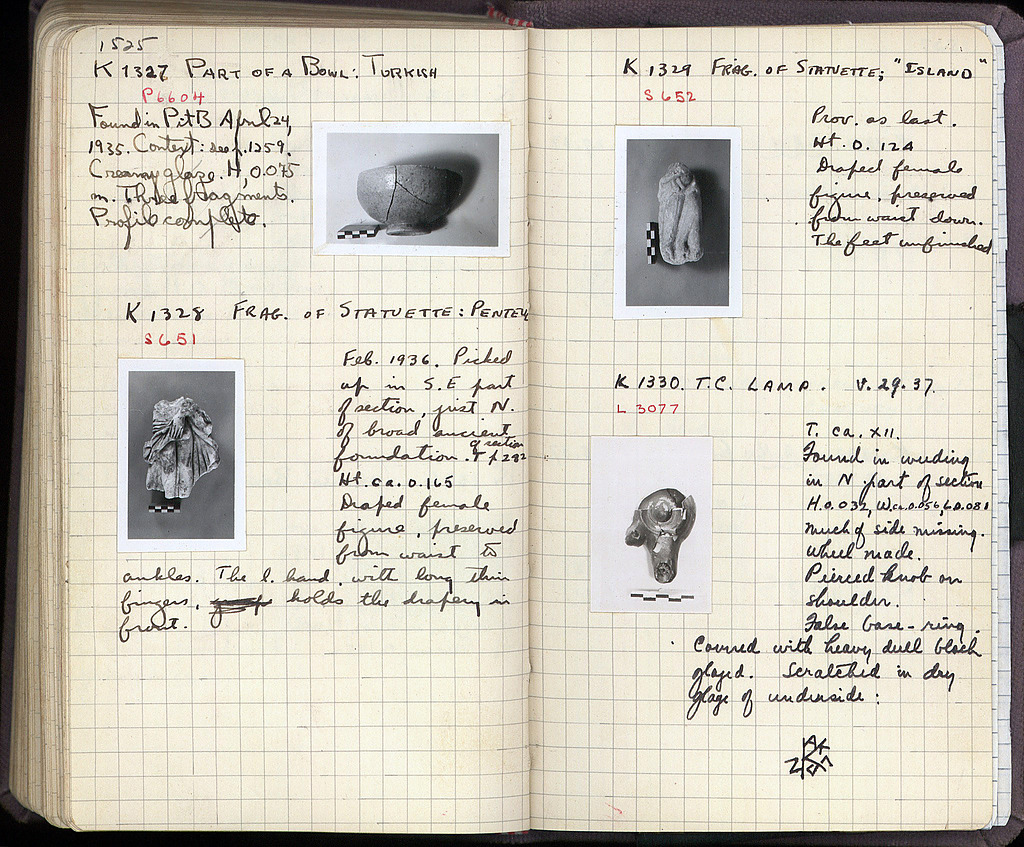 1525
K 1327 PART OF A BOWL: TURKISH
P 6604
Found in Pit B April 24,
1935. Context: see p. 1259.
Creamy glaze. H, 0.075
m. Three fragments.
Profile complete.
K 1328 FRAG. OF STATUETTE: PENTEL
S 651
Feb. 1936. Picked
up in S.E part
of section, just N.
of broad ancient
foundation. of section
p 282
Ht. ca. 0.165
Draped female
figure, preserved
from waist to
ankles. The l. hand, with long thin
fingers, holds the drapery in
front.
K 1329 FRAG. OF STATUETTE; "ISLAND"
S 652
Prov. as last.
Ht. 0.124
Draped female
figure, preserved
from waist down.
The feet unfinished
K 1330. T.C. LAMP. V. 29. 37.
L 3077
T. ca. XII.
Found in
in N. part of section
H. 0.032, W. ca. 0.056, L. 0.081
much of side missing.
Wheel made.
Pierced knob on
shoulder.
False base-ring.
Covered with heavy dull black
glaze. Scratched in dry
glaze of underside: